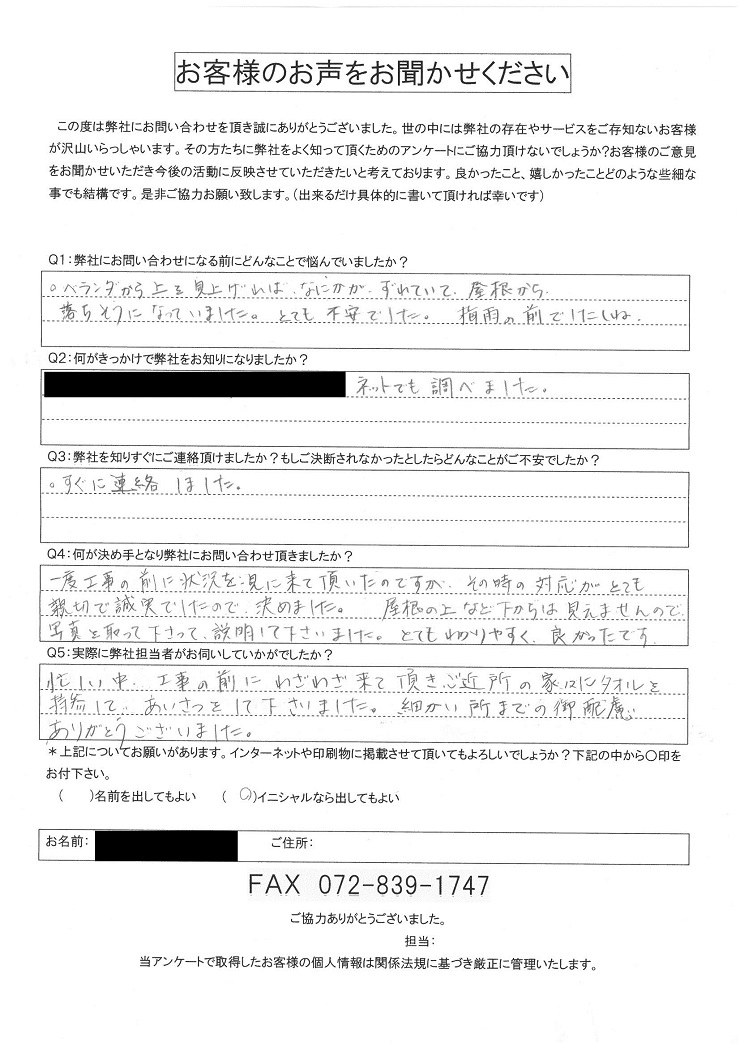 お客様のお声をお聞かせください
この度は弊社にお問い合わせを頂き誠にありがとうございました。世の中には弊社の存在やサービスをご存知ないお客様
が沢山いらっしゃいます。その方たちに弊社をよく知って頂くためのアンケートにご協力頂けないでしょうか?お客様のご意見
をお聞かせいただき今後の活動に反映させていただきたいと考えております。良かったこと、嬉しかったことどのような些細な
事でも結構です。是非ご協力お願い致します。(出来るだけ具体的に書いて頂ければ幸いです)
Q1:弊社にお問い合わせになる前にどんなことで悩んでいましたか?
○ベランダから上を見上げれば、なにかが、ずれていて、屋根から
落ちそうになっていました。とても不安でした。梅雨の前でしたしね。
Q2:何がきっかけで弊社をお知りになりましたか?
ネットでも調べました。
Q3:弊社を知りすぐにご連絡頂けましたか?もしご決断されなかったとしたらどんなことがご不安でしたか?
○すぐに連絡しました。
Q4:何が決め手となり弊社にお問い合わせ頂きましたか?
一度工事の前に状況を見に来て頂いたのですが、その時の対応がとても
親切で誠実でしたので、決めました。屋根の上など下からは見えませんので、
写真を取って下さって、説明して下さいました。とてもわかりやすく、良かったです。
Q5:実際に弊社担当者がお伺いしていかがでしたか?
忙しい中、工事の前にわざわざ来て頂きご近所の家々にタオルを
持参して、あいさつをして下さいました。細かい所までの御配慮
ありがとうございました。
*上記についてお願いがあります。インターネットや印刷物に掲載させて頂いてもよろしいでしょうか?下記の中から〇印を
お付下さい。
(　)名前を出してもよい　(○)イニシャルなら出してもよい
お名前:　ご住所:
FAX 072-839-1747
ご協力ありがとうございました。
担当:
当アンケートで取得したお客様の個人情報は関係法規に基づき厳正に管理いたします。